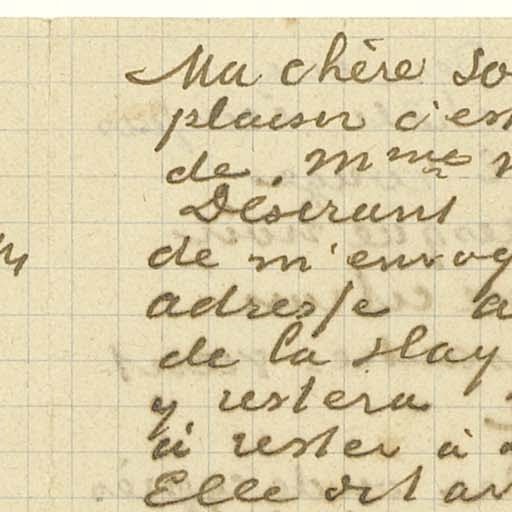 Ma chère So
plaisir c'est
de Mmes
Desirant
de m'envoy
adresse a
de la slay
y restera
à rester à
Elle dit av